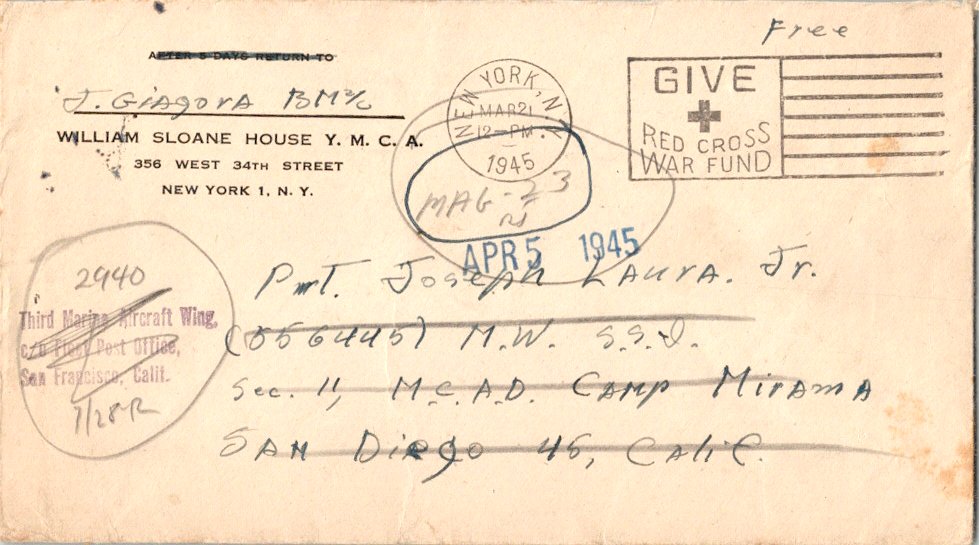 Free
AFTER 5 DAYS RETURN TO
J. Giagova BM2/c
WILLIAM SLOANE HOUSE Y. M. C. A.
356 WEST 34TH STREET
NEW YORK 1, N. Y.
NEW YORK, N.Y.
MAR 21
12-PM
1945
GIVE
RED CROSS
WAR FUND
MAG-23
APR 5 1945
2940
Third Marine Aircraft Wing,
c/o Fleet Post Office,
San Francisco, Calif.
Pvt. Joseph Laura. Jr.
(556445) M.W. S.S.
Sec. 11, M.C.A.D. Camp Mirama
San Diego 45, Calif.